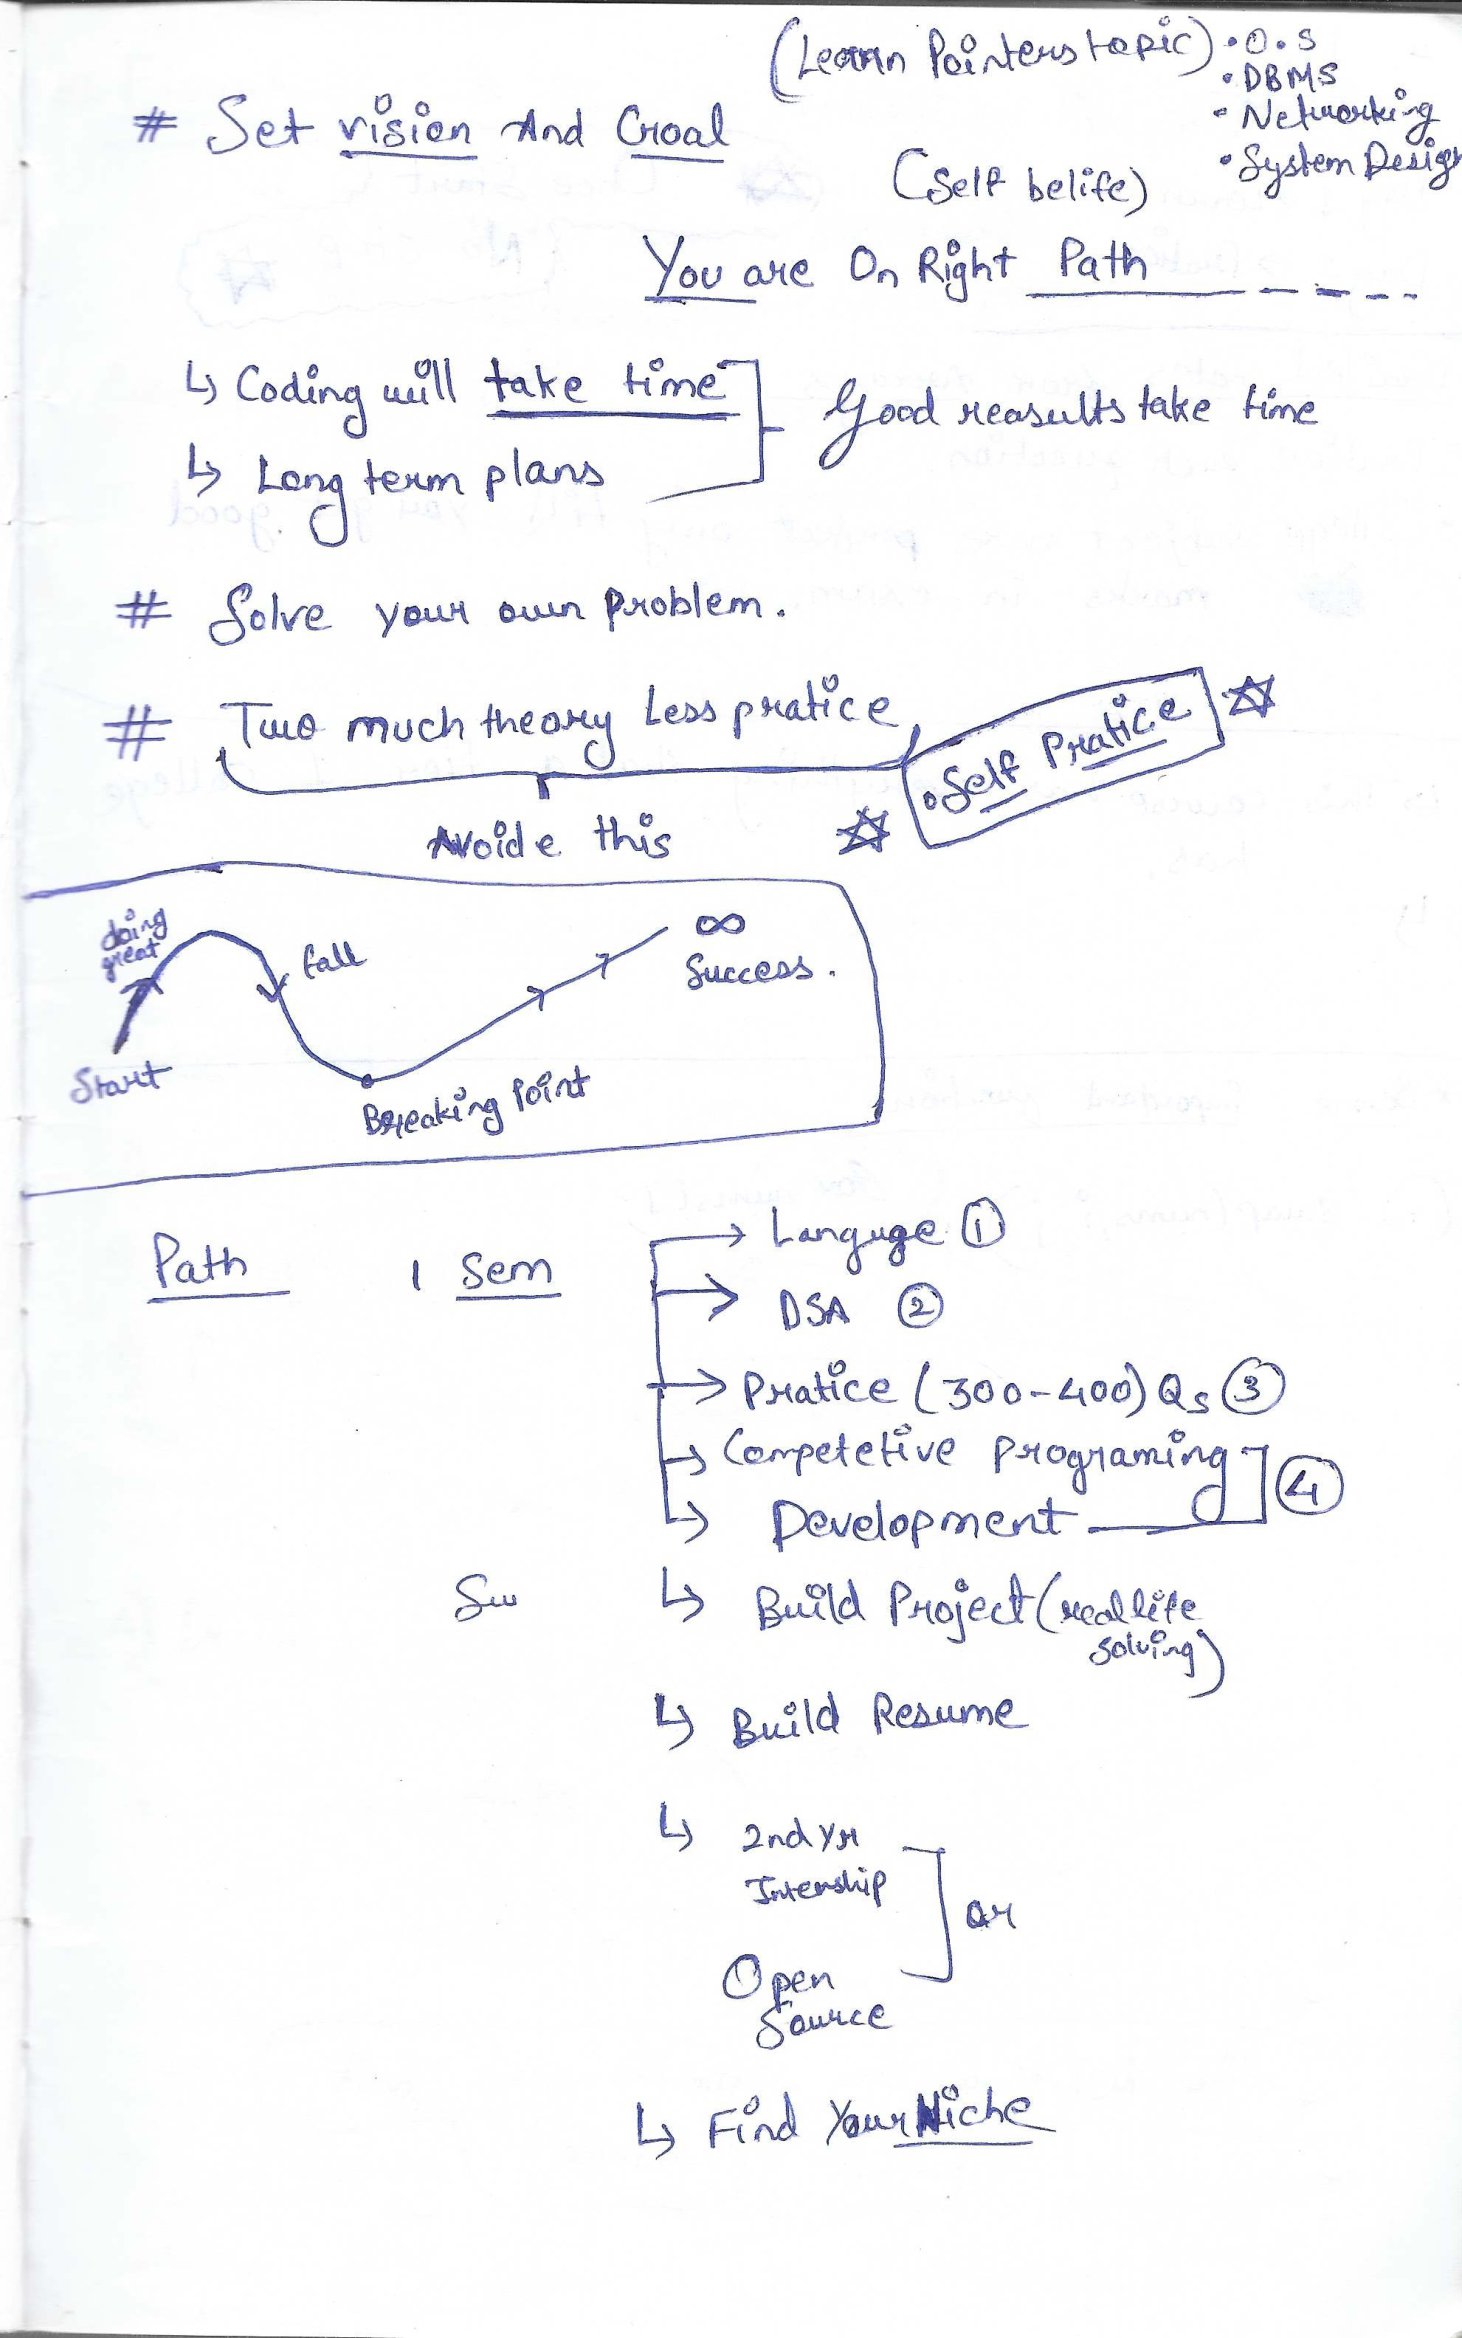 (Learn Pointers topic)
• O.S
• DBMS
• Networking
• System Design
# Set vision And Goal
(Self belife)
You are On Right Path
↳ Coding will take time
↳ Long term plans
Good reasults take time
# Solve your own problem.
# Two much theory Less pratice
• Self Pratice
Avoide this
doing
great
fall
∞
Success.
Start
Breaking Point
Path
1 Sem
→ Languge ①
→ DSA ②
→ Pratice (300-400) Qs ③
→ Competetive programing
④
↳ Development
↳ Build Project (real life
solving)
↳ Build Resume
↳ 2nd yr
Internship
or
Open
Source
↳ Find Your Niche